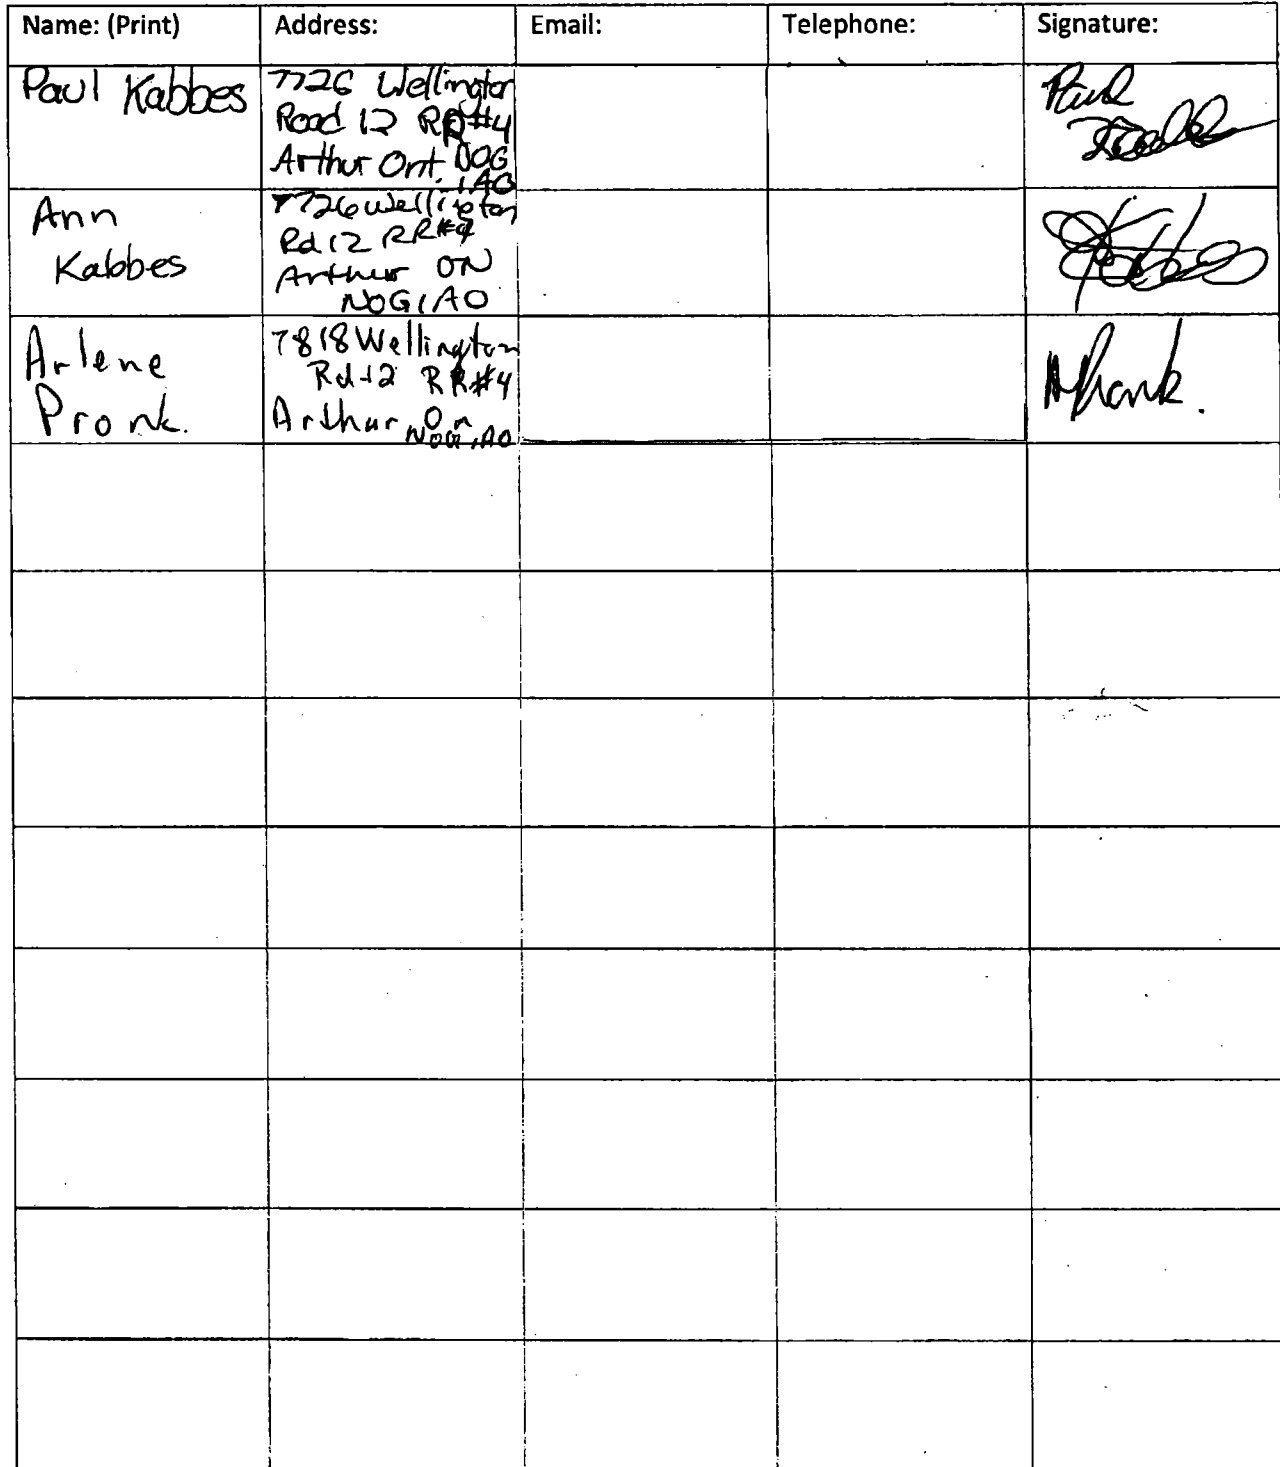 Name: (Print) Address: Email: Telephone: Signature:
Paul Kabbes
7726 Wellington
Road 12 RR#4
Arthur Ont. N0G
1A0
Paul
Ann
Kabbes
7726 Wellington
Rd 12 RR#4
Arthur ON
N0G 1A0
Arlene
Pronk.
7818 Wellington
Rd 12 RR#4
Arthur, On
N0G 1A0
APronk.